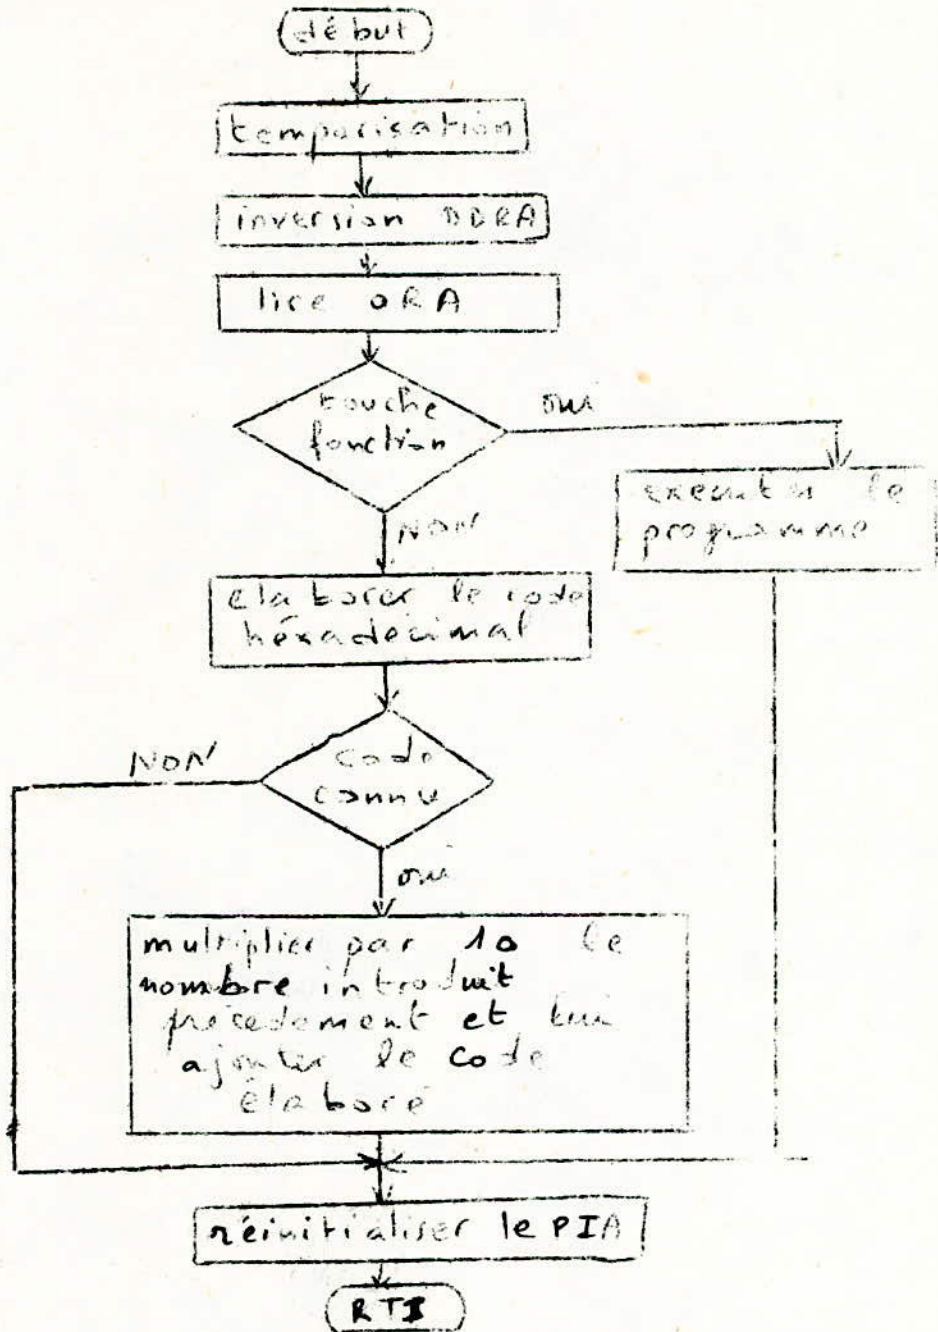 début
temporisation
inversion DDRA
lire ORA
touche
fonction
oui
exécuter le
programme
NON
élaborer le code
héxadécimal
NON
code
connu
oui
multiplier par 10 le
nombre introduit
précedement et lui
ajouter le code
élaboré
réinitialiser le PIA
RTI